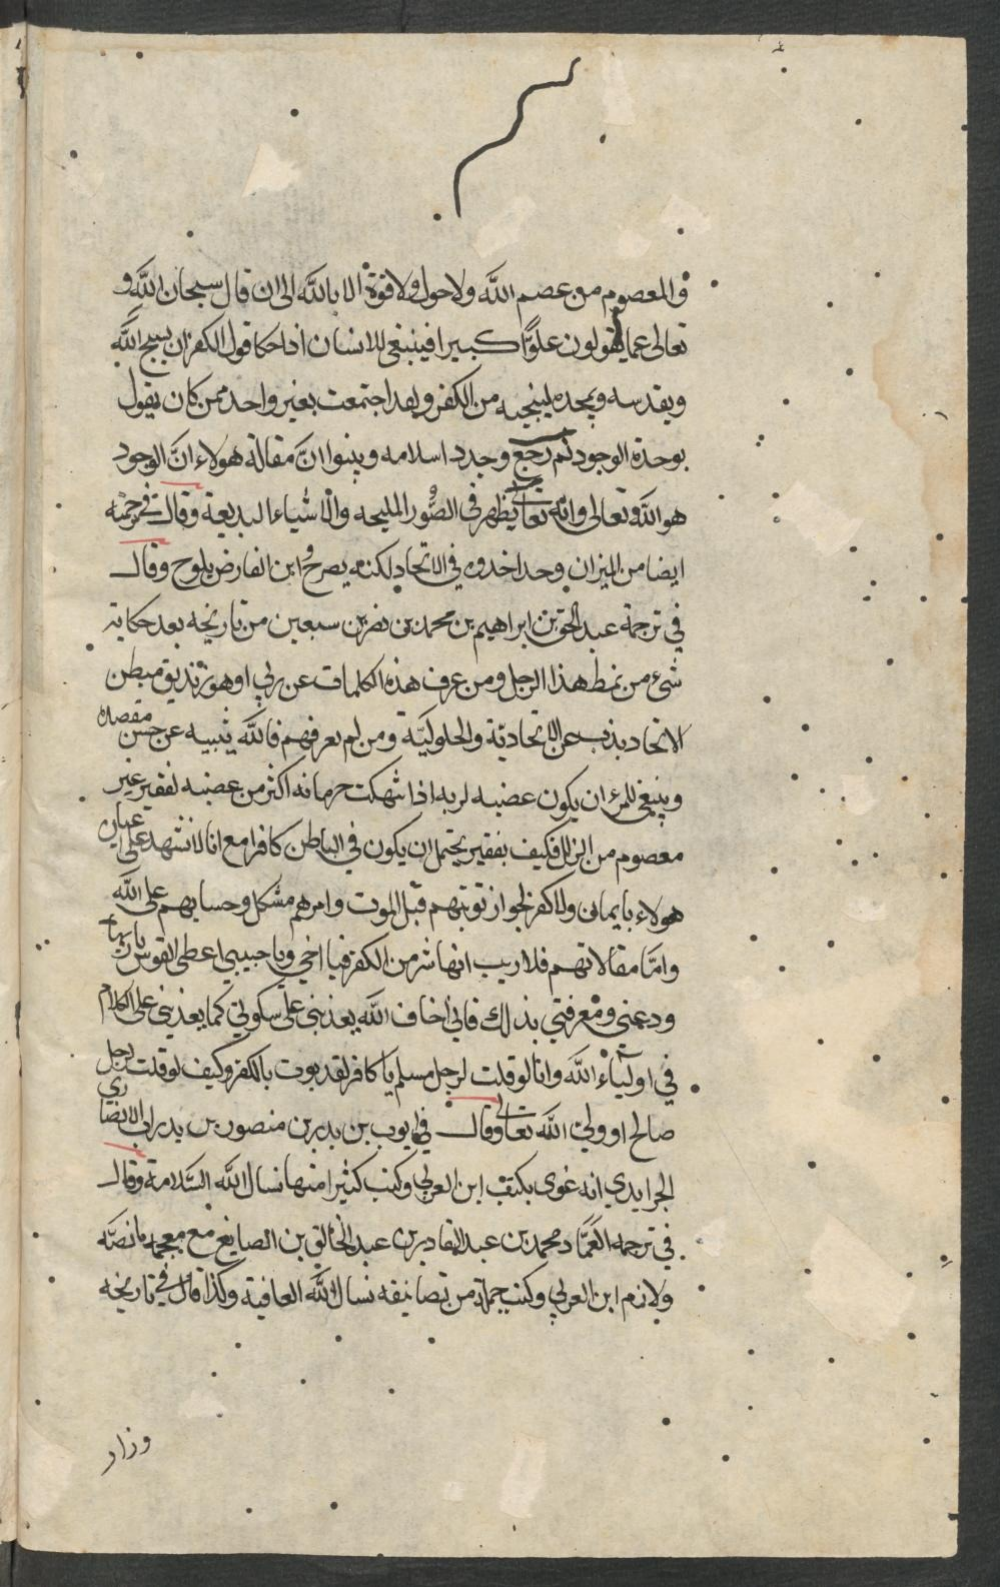 والمعصوم من عصم الله ولاحول ولا قوة الا بالله الى ان قال سبحان الله و
تعالى عما يقولون علوًّا كبيرا فينبغي للانسان اذا حكا قول الكفر ان يسبح الله
ويقدسه ويمجده لينجيه من الكفر ولقد اجتمعت بغير واحد ممن كان يقول
بوحدة الوجود ثم رجع وجدد اسلامه وبينوا انّ مقالة هولاء انّ الوجود
هو الله تعالى وانه تعالى يظهر في الصُّور المليحه والاشياء البديعة وقال في ترجمته
ايضا من الميزان وحدا خدوه في الاتحاد لكنه يصرح وابن الفارض يلوح وقال
في ترجمة عبد الحق بن ابراهيم بن محمد بن نصر بن سبعين من تاريخه بعد حكاية
شيء من نمط هذا الرجل ومن عرف هذه الكلمات عن ربي او هو زنديق مبطن
الاتحاد يذب عن الاتحاديّة والحلوليّة ومن لم يعرفهم فالله يثيبه عن حسن مقصده
وينبغي للمرء ان يكون غضبه لربه اذا انتهكت حرماته اكثر من غضبه لفقير غير
معصوم من الزلل فكيف بفقير يحتمل ان يكون في الباطن كافرا مع انا لا نشهد على اعيان
هولاء بايمان ولا كفر لجواز توبتهم قبل الموت وامرهم مشكل وحسابهم على الله
وامّا مقالاتهم فلا ريب انها شر من الكفر فيا اخي ويا حبيبي اعطي القوس باريها
ودعني ومعرفتي بذلك فاني أخاف الله يعذبني على سكوتي كما يعذبني على الكلام
في اولياء الله وانا لو قلت لرجل مسلم يا كافر لقد بوت بالكفر وكيف لو قلت لرجل
صالح او ولي الله تعالى وقال في ايوب بن بدر بن منصور بن بدران الانصاري
الجرايدي انه غوى بكتب ابن العربي وكتب كثيرا منها نسال الله السّلامة وقال
في ترجمه العمّاد محمد بن عبد القادر بن عبد الخالق بن الصايغ مع معجمه ما نصّه
ولازم ابن العربي وكتب جملة من تصانيفه نسال الله العافية وكذا قال في تاريخه
وزاد